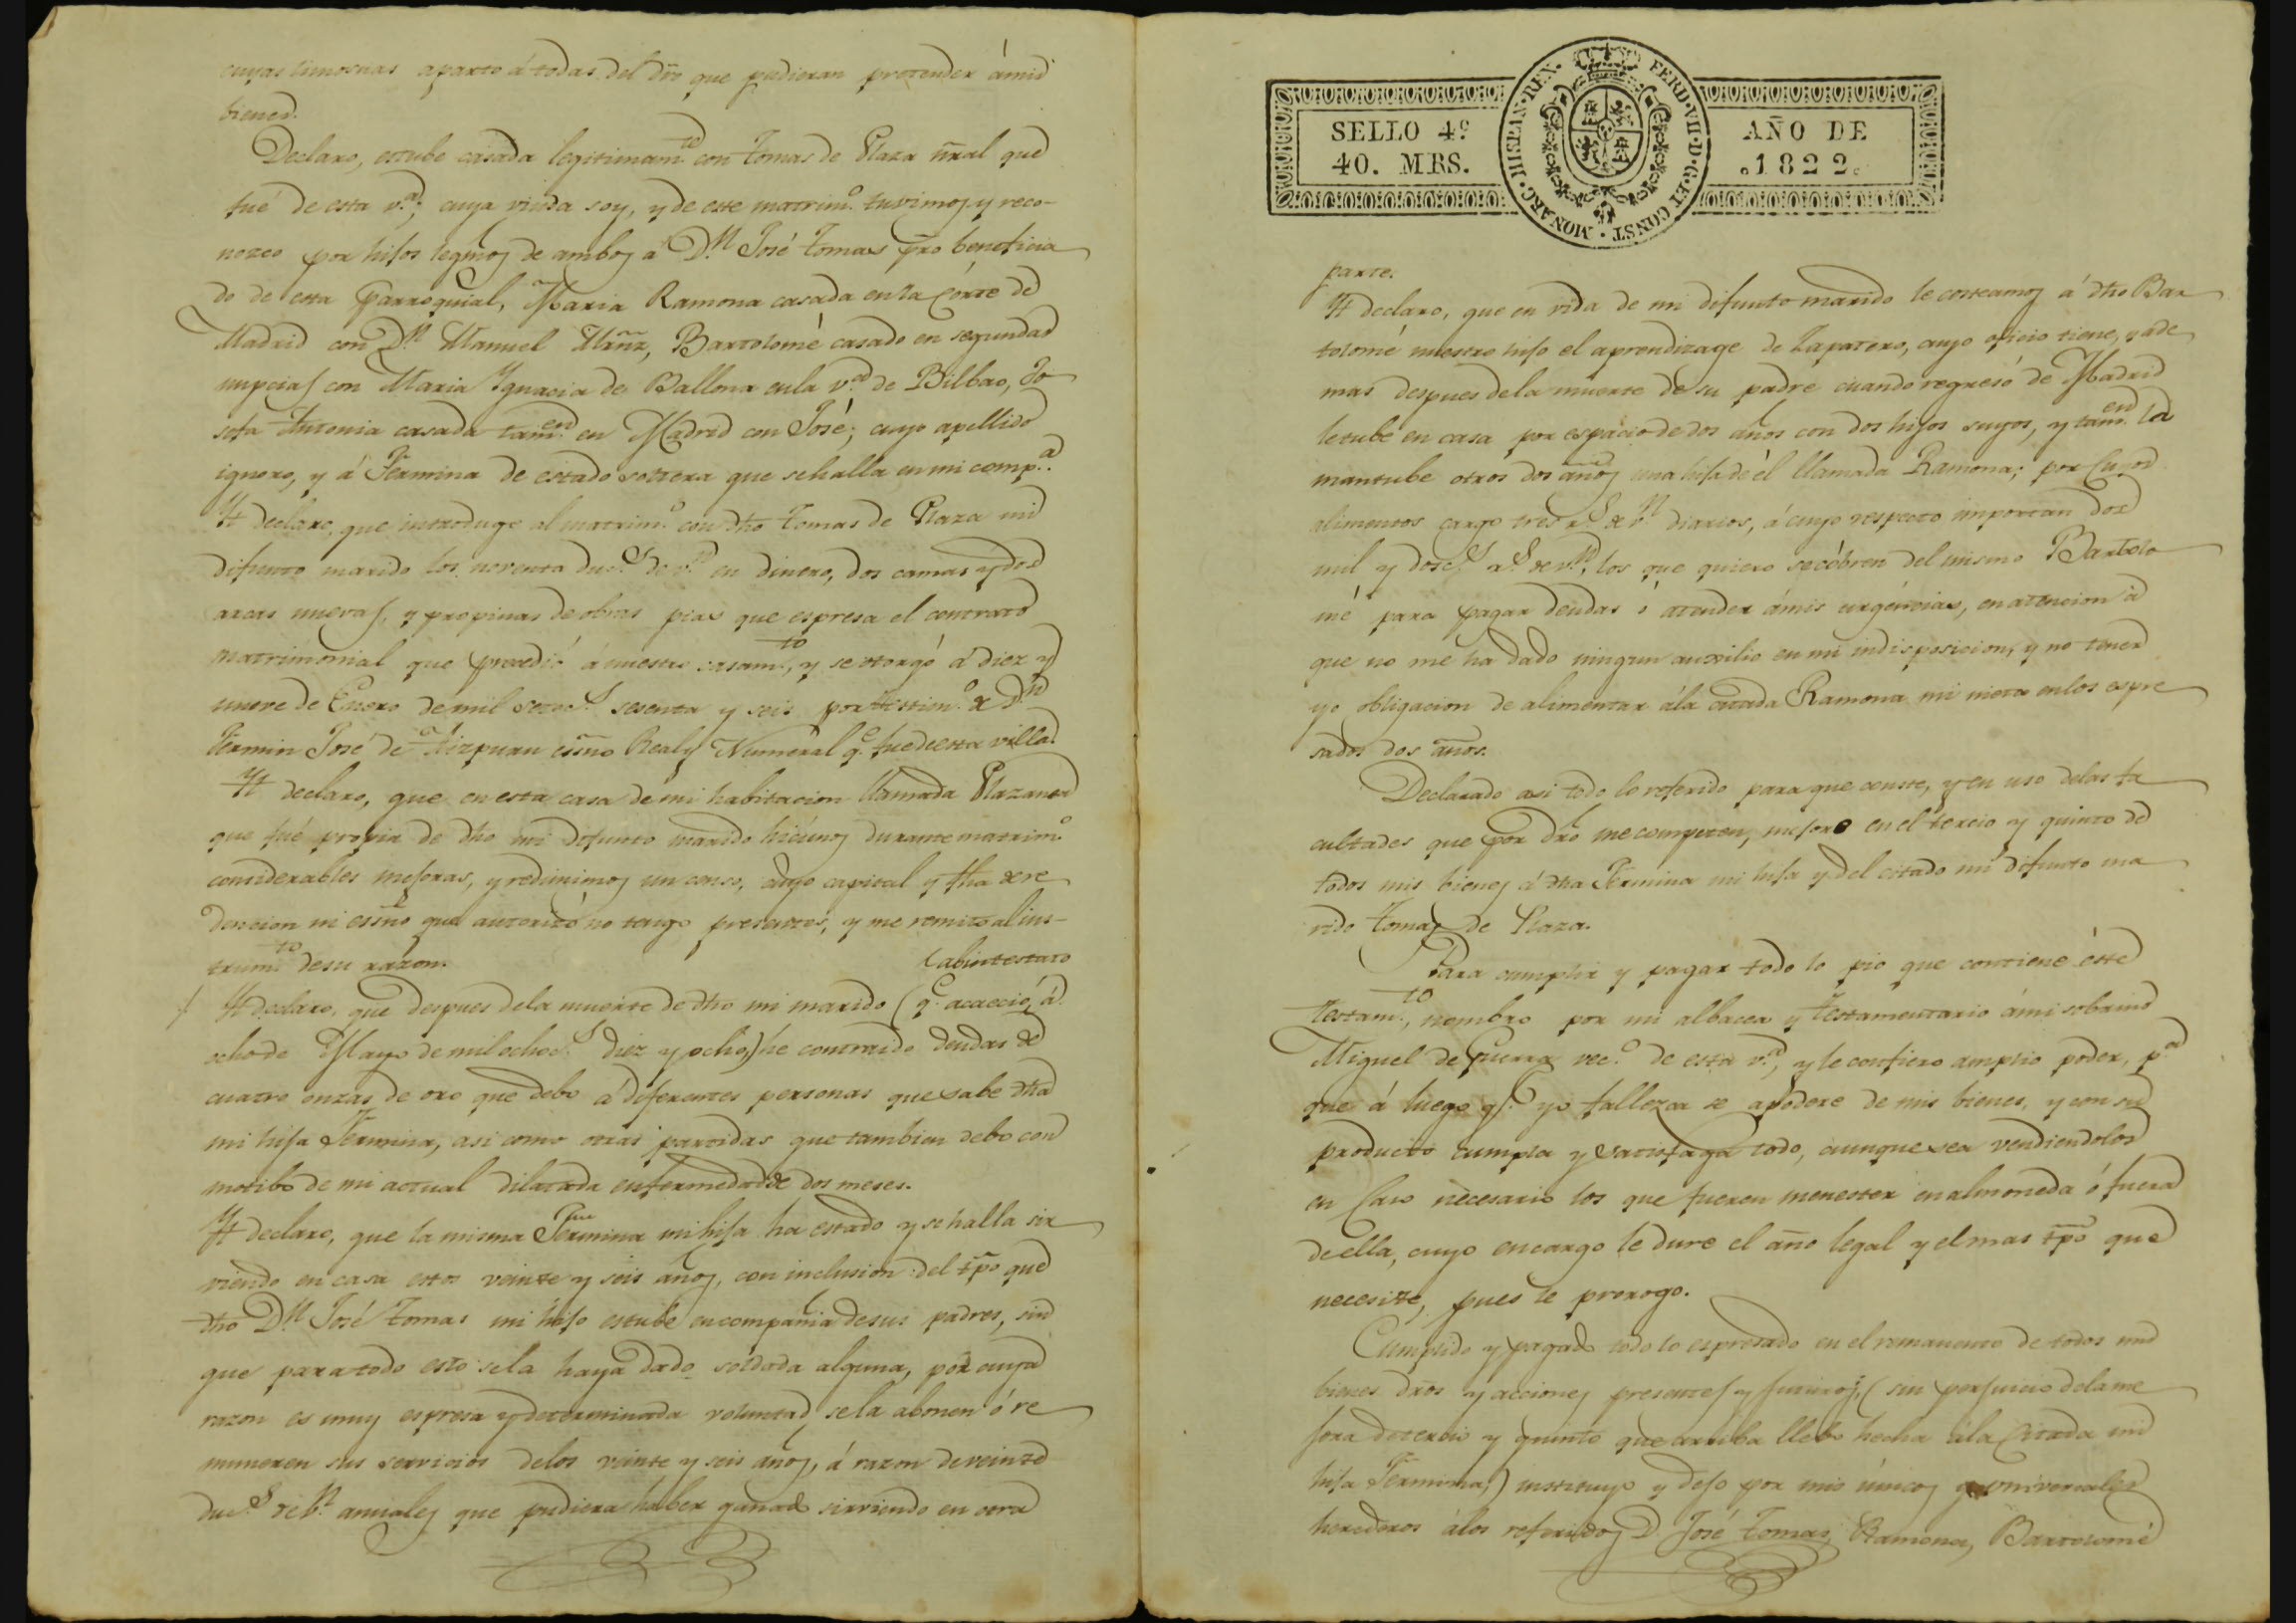 cuyas limosnas aparto á todas del dro que pudieran pretender á mis
bienes.
Declaro, estube casada legitimamte con Tomas de Plaza nral que
fue de esta va; cuya viuda soy, y de este matrimo tuvimos y reco-
nozco por hijos legmos de ambos a Dn José Tomas pro beneficia
do de esta Parroquial, Maria Ramona casada en la Córte de
Madrid con Dn Manuel Mrñz, Bartolomé casado en segundas
nupcias con Maria Ygnacia de Ballona en la va de Bilbao, Jo
sefa Antonia casada tamen en Madrid con José; cuyo apellido
ignoro, y á Fermina de estado soltera que se halla en mi compa.
Yt declaro, que introduge al matrimo con dho Tomas de Plaza mi
difunto marido los noventa ducs de vn en dinero, dos camas y dos
arcas nuevas, y propinas de obras pias que espresa el contrato
matrimonial que precedió á nuestro casamto, y se otorgó á diez y
nueve de Enero de mil setecs sesenta y seis por testimo de Dn
Fermin José de Aizpuru esno Real y Numeral qe fue de esta villa.
Yt declaro, que en esta casa de mi habitacion llamada Plazanea
que fué propia de dho mi difunto marido hicimos durante matrimo
considerables mejoras, y redimimos un censo, cuyo capital y fha de re
dencion ni esno que autorizó no tengo presentes, y me remito al ins-
trumto de su razon. (abintestato
Yt declaro, que despues de la muerte de dho mi marido (qe acaeció á
ocho de Mayo de mil ochocs diez y ocho,) he contraido deudas de
cuatro onzas de oro que debo á diferentes personas que sabe dha
mi hija Fermina, asi como otras partidas que tambien debo con
motibo de mi actual dilatada enfermedad de dos meses.
Yt declaro, que la misma Fermina mi hija ha estado y se halla sir
viendo en casa estos veinte y seis años, con inclusion del tpo que
dho Dn José Tomas mi hijo estube en compañia de sus padres, sin
que para todo esto se la haya dado soldada alguna, por cuya
razon es muy espresa y determinada voluntad se la abonen ó re
muneren sus servicios de los veinte y seis años, á razon de veinte
ducs de vn anuales que pudiera haber ganado sirviendo en otra
SELLO 4º
40. MRS.
HISPAN·REX· FERD·VII·D·G·ET CONST·MONARC·
AÑO DE
1822
parte.
Yt declaro, que en vida de mi difunto marido le costeamos á dho Bar
tolomé nuestro hijo el aprendizage de Zapatero, cuyo oficio tiene, y ade
mas despues de la muerte de su padre cuando regresó de Madrid
le tube en casa por espacio de dos años con dos hijos suyos, y tamen la
mantube otros dos años una hija de él llamada Ramona; por cuyos
alimentos cargo tres rs de vn diarios, á cuyo respecto importan dos
mil y doscs rs de vn, los que quiero se cóbren del mismo Bartolo
mé para pagar deudas ó atender á mis urgencias, en atencion á
que no me ha dado ningun auxilio en mi indisposicion, y no tener
yo obligacion de alimentar á la citada Ramona mi nieta en los espre
sados dos años.
Declarado asi todo lo referido para que conste, y en uso de las fa
cultades que por dro me competen, mejoro en el tercio y quinto de
todos mis bienes á dha Fermina mi hija y del citado mi difunto ma
rido Tomas de Plaza.
Para cumplir y pagar todo lo pio que contiene éste
testamto, nombro por mi albacea y testamentario á mi sobrino
Miguel de Guerra veco de esta va, y le confiero amplio poder, pa
que á luego qe yo fallezca se apodere de mis bienes, y con su
producto cumpla y satisfaga todo, aunque sea vendiendolos
en caso necesario los que fueren menester en almoneda ó fuera
de ella, cuyo encargo le dure el año legal y el mas tpo que
necesite, pues le prorogo.
Cumplido y pagado todo lo espresado en el remanente de todos mis
bienes dros y acciones presentes y futuros, (sin perjuicio de la me
jora de tercio y quinto que arriba llebo hecha á la citada mi
hija Fermina,) instituyo y dejo por mis únicos y universales
herederos á los referidos D José Tomas, Ramona, Bartolomé